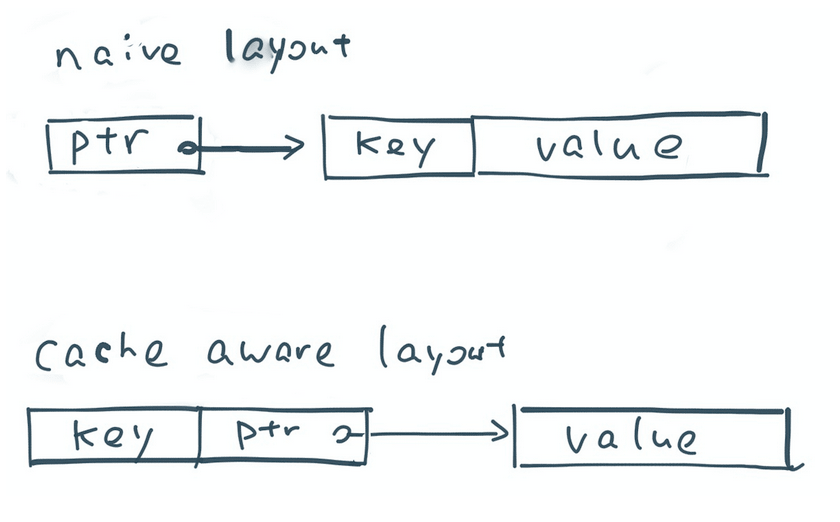 naive layout
ptr key value
cache aware layout
key ptr value